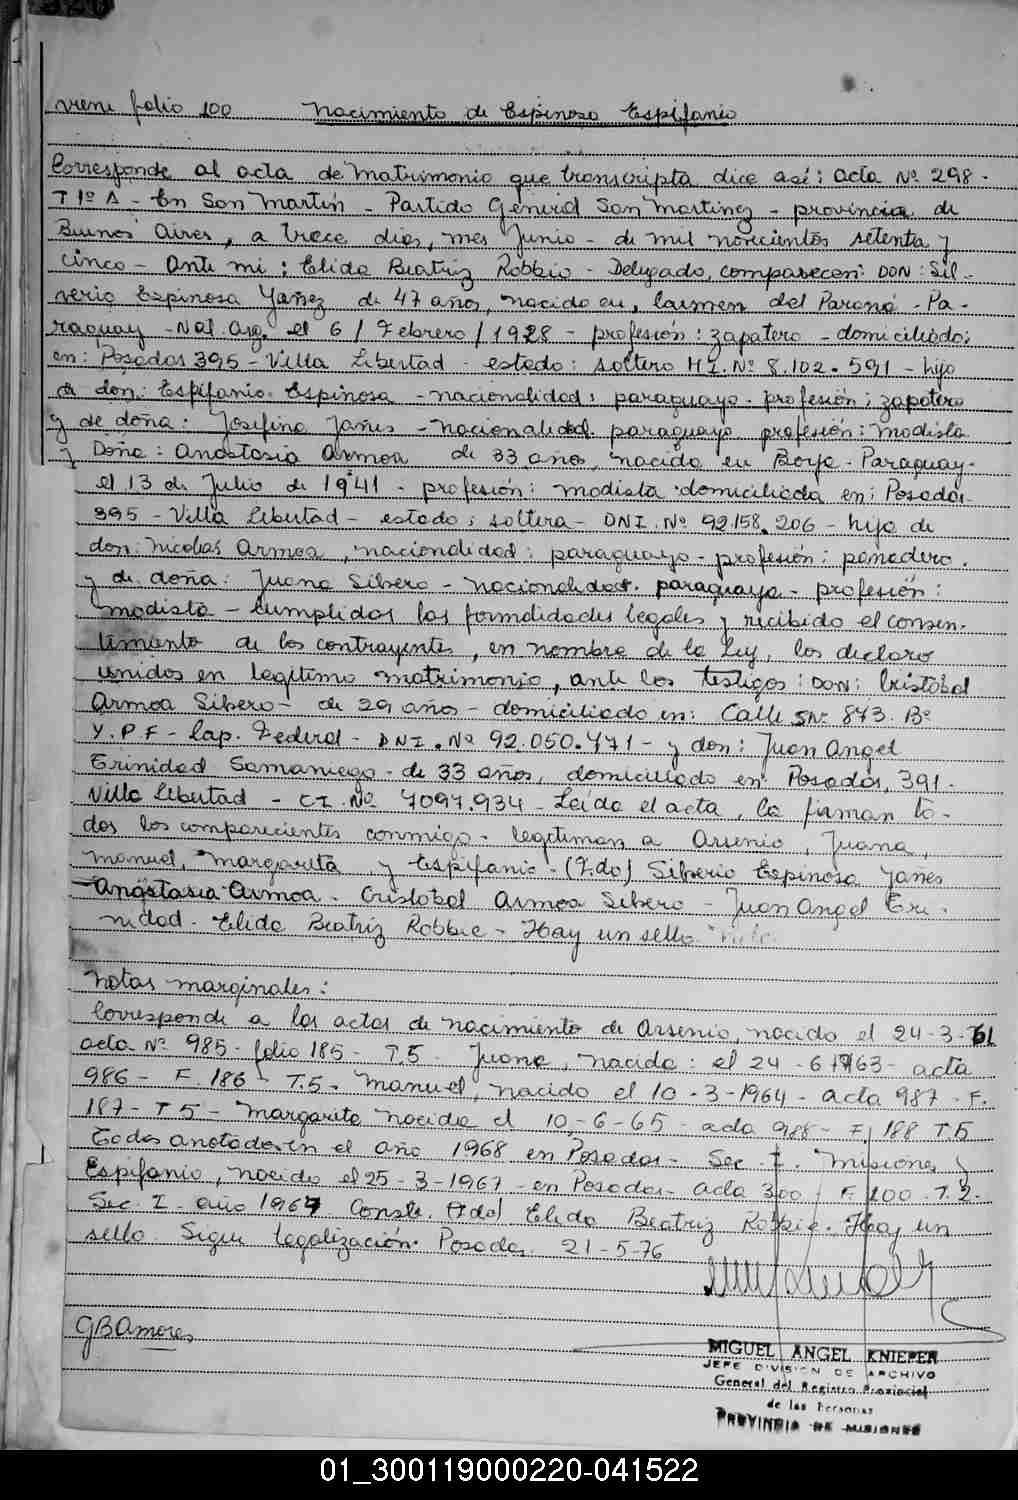 viene folio 100 Nacimiento de Espinoza Espifanio
Corresponde al acta de Matrimonio que transcripta dice así: acta Nº 298.
T 1º A - En San Martín - Partido General San Martínez - provincia de
Buenos Aires, a trece dias, mes Junio - de mil novecientos setenta y
cinco - Ante mi: Elida Beatriz Robbio - Delegado, comparecen: DON: Sil-
verio Espinosa Yañez de 47 años, nacido en, Carmen del Paraná - Pa-
raguay - Nal. Arg. el 6/Febrero/1928 - profesión: zapatero - domiciliado:
en: Posadas 395 - Villa Libertad - estado: soltero M I. Nº 8.102.591 - hijo
de don: Espifanio Espinosa - nacionalidad: paraguayo - profesión: zapatero
y de doña: Josefina Yañes - nacionalidad. paraguaya profesión: modista
y Doña: Anastasia Armoa de 33 años, nacido en Borja - Paraguay-
el 13 de Julio de 1941 - profesión: modista domiciliada en: Posadas
395 - Villa Libertad - estado: soltera - DNI. Nº 92.158.206 - hija de
don: Nicolas Armoa, nacionalidad: paraguayo - profesión: panadero.
y de doña: Juana Sibero - nacionalidad. paraguaya - profesión:
modista - Cumplidas las formalidades legales y recibido el consen-
timiento de los contrayentes, en nombre de la Ley, los declaro
unidos en legítimo matrimonio, ante los testigos: DON: Cristobal
Armoa Sibero - de 29 años - domiciliado en: Calle SNº 873. Bº
Y.P.F - Cap. Federal - DNI. Nº 92.050.471 - y don: Juan Angel
Trinidad Samaniego - de 33 años, domiciliado en Posadas, 391.
Villa Libertad - CI. Nº 7097.934 - Leída el acta, la firman to-
dos los comparecientes conmigo - legitiman a Arsenio, Juana,
Manuel, Margarita y Espifanio - (F.do) Silverio Espinosa Yañes
Anastasia Armoa - Cristobal Armoa Sibero - Juan Angel Tri-
nidad. Elida Beatriz Robbio - Hay un sello
Notas marginales:
Corresponde a las actas de nacimiento de Arsenio, nacido el 24-3-61
acta Nº 985 - folio 185 - T.5. Juana, nacida: el 24-6-1963 - acta
986 - F. 186 - T.5. Manuel, nacido el 10-3-1964 - acta 987 - F.
187 - T 5 - Margarita nacida el 10-6-65 - acta 988 - F. 188 T.5
todas anotadas en el año 1968 en Posadas - Sec. I. Misiones y
Espifanio, nacido el 25-3-1967 - en Posadas - acta 300 F. 100. T.2.
Sec. I. año 1967 Conste. (Fdo) Elida Beatriz Robbio. Hay un
sello. Sigue legalización. Posadas. 21-5-76
GBAmores
MIGUEL ANGEL KNIEPER
JEFE DIVISION DE ARCHIVO
General del Registro Provincial
de las Personas
PROVINCIA DE MISIONES
01_300119000220-041522